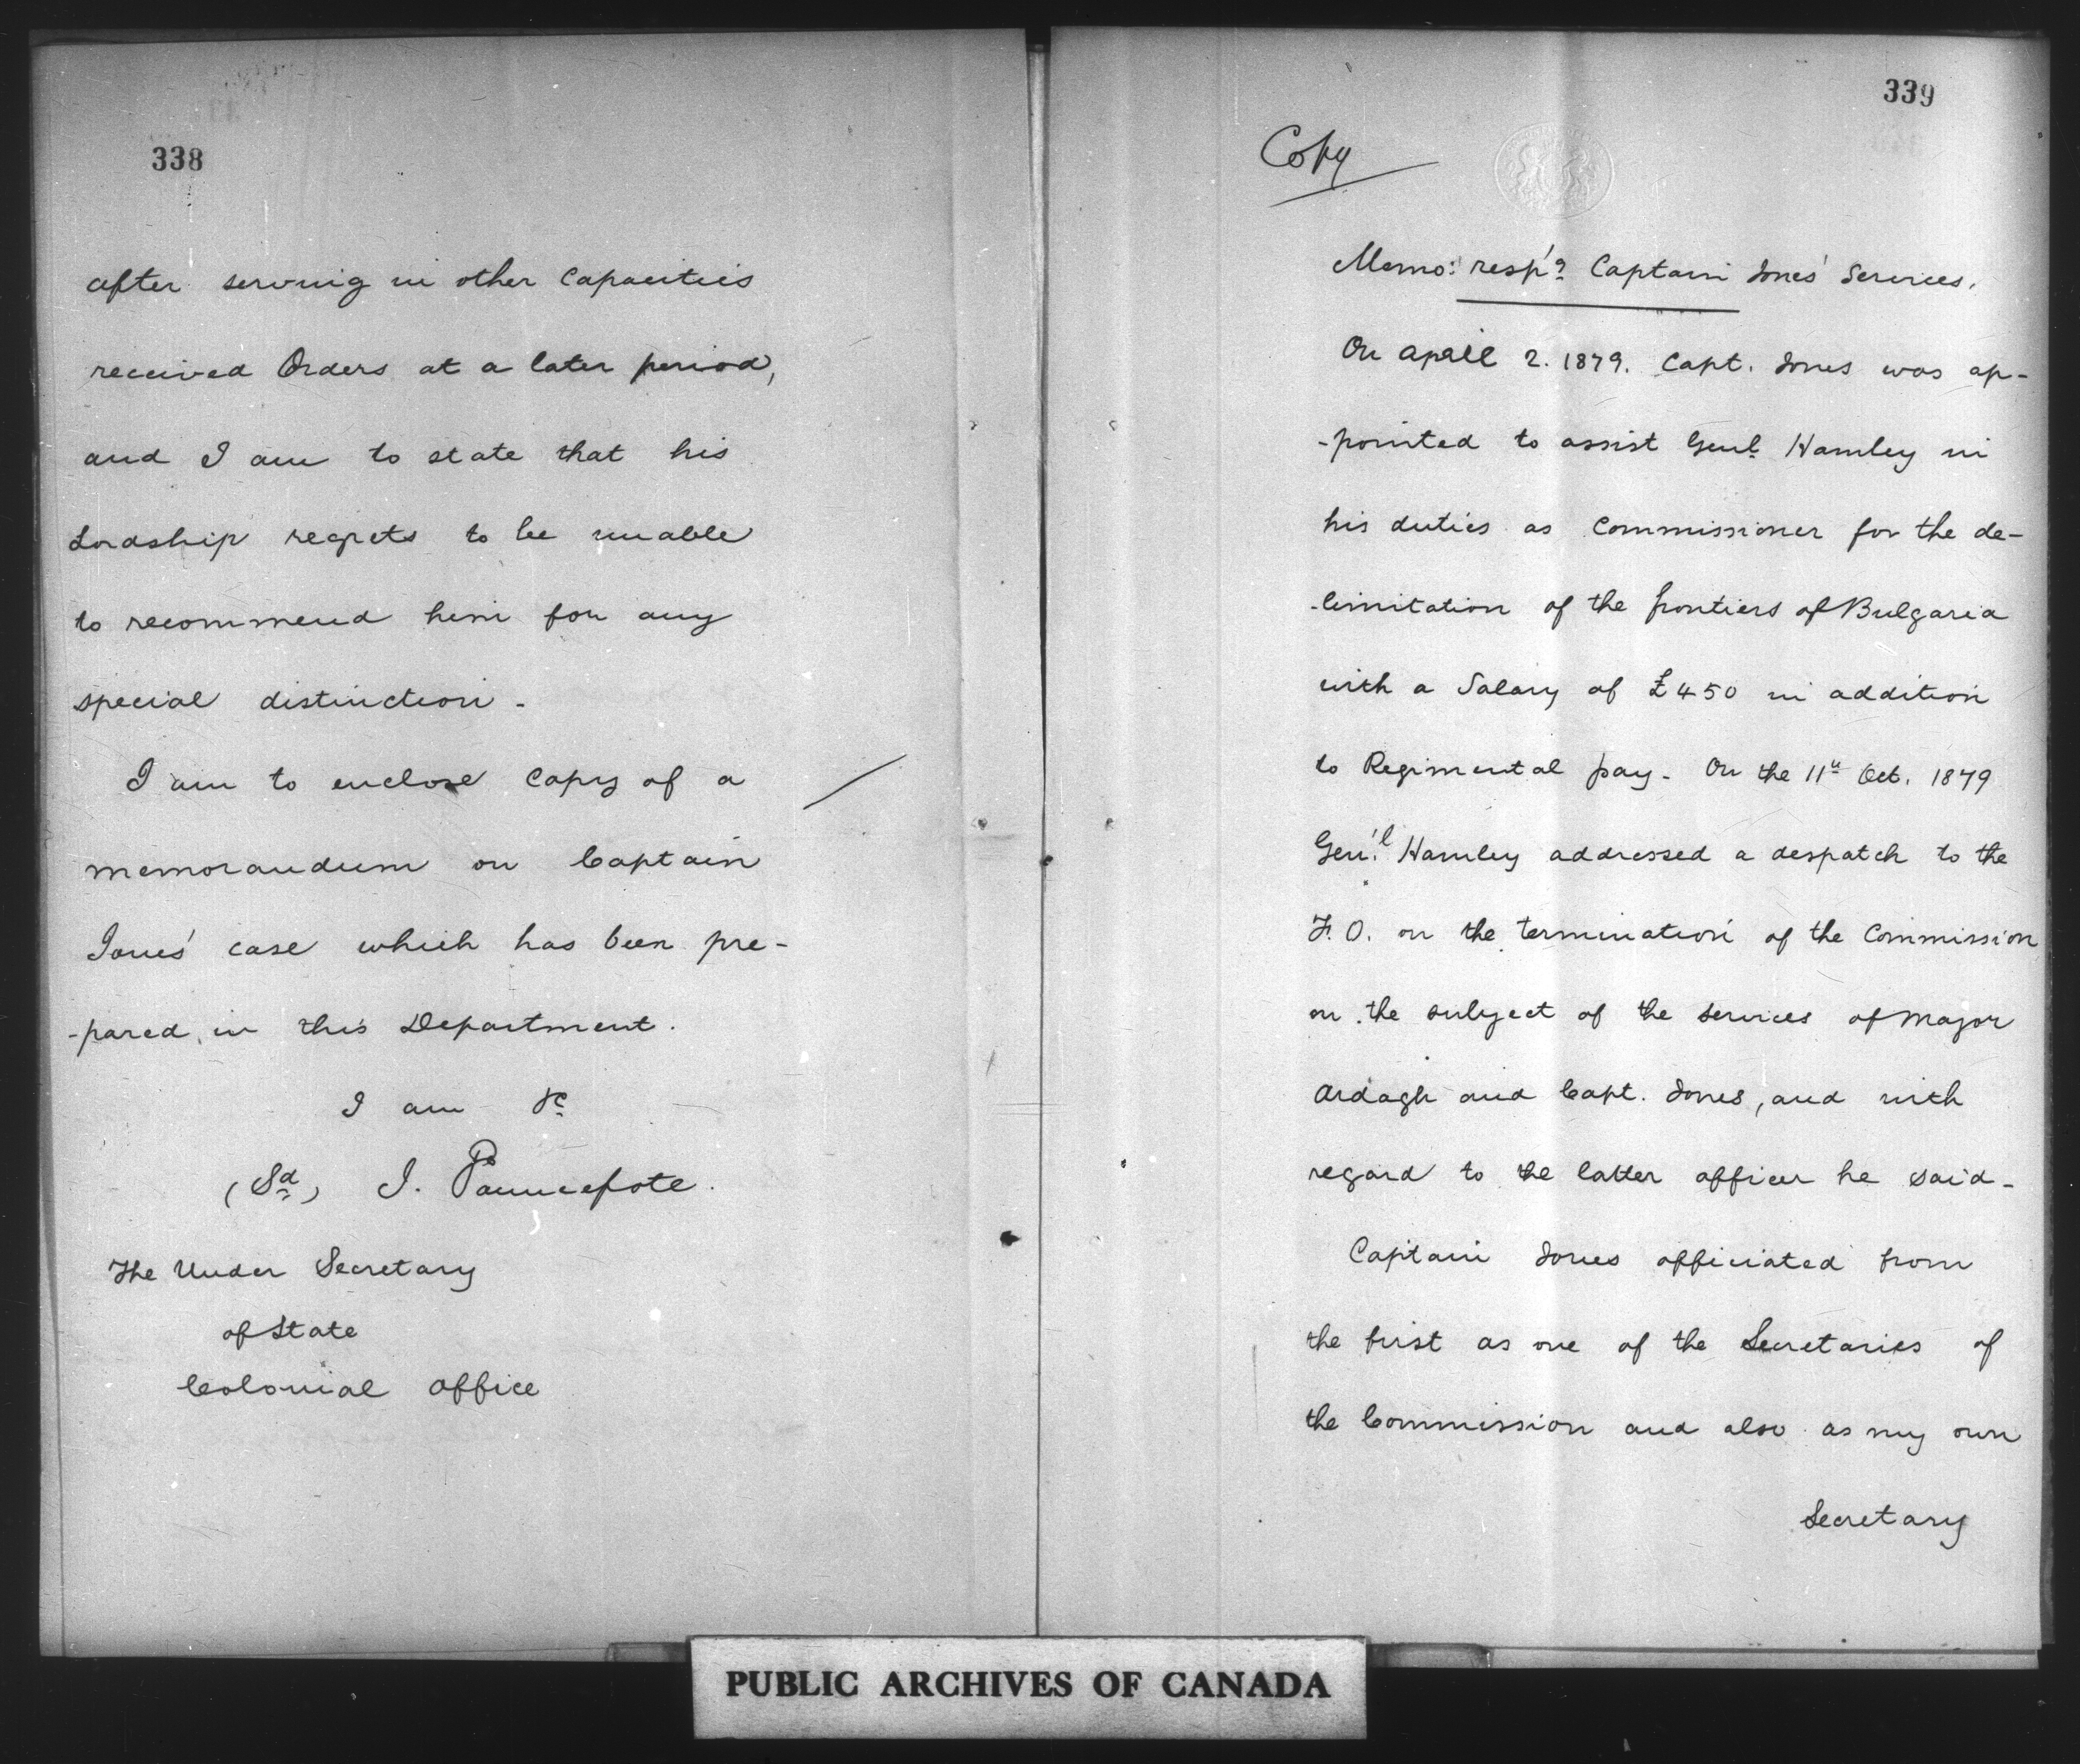 338
after serving in other Capacities
received Orders at a later period,
and I am to state that his
Lordship regrets to be unable
to recommend him for any
special distinction -
I am to enclose Copy of a
memorandum on Captain
Jones' case which has been pre-
-pared, in this Department.
I am &c
(Sd) J. Pauncefote.
The Under Secretary
of State
Colonial Office
339
Copy
Memo: resp'g Captain Jones' Services.
On April 2. 1879. Capt. Jones was ap-
-pointed to assist Genl Hamley in
his duties as Commissioner for the de-
-limitation of the frontiers of Bulgaria
with a Salary of £450 in addition
to Regimental pay - On the 11th Oct. 1879
Gen'l Hamley addressed a despatch to the
F. O. on the termination of the Commission
on the subject of the services of Major
Ardagh and Capt. Jones, and with
regard to the latter officer he said -
Captain Jones officiated from
the first as one of the Secretaries of
the Commission and also as my own
Secretary
PUBLIC ARCHIVES OF CANADA